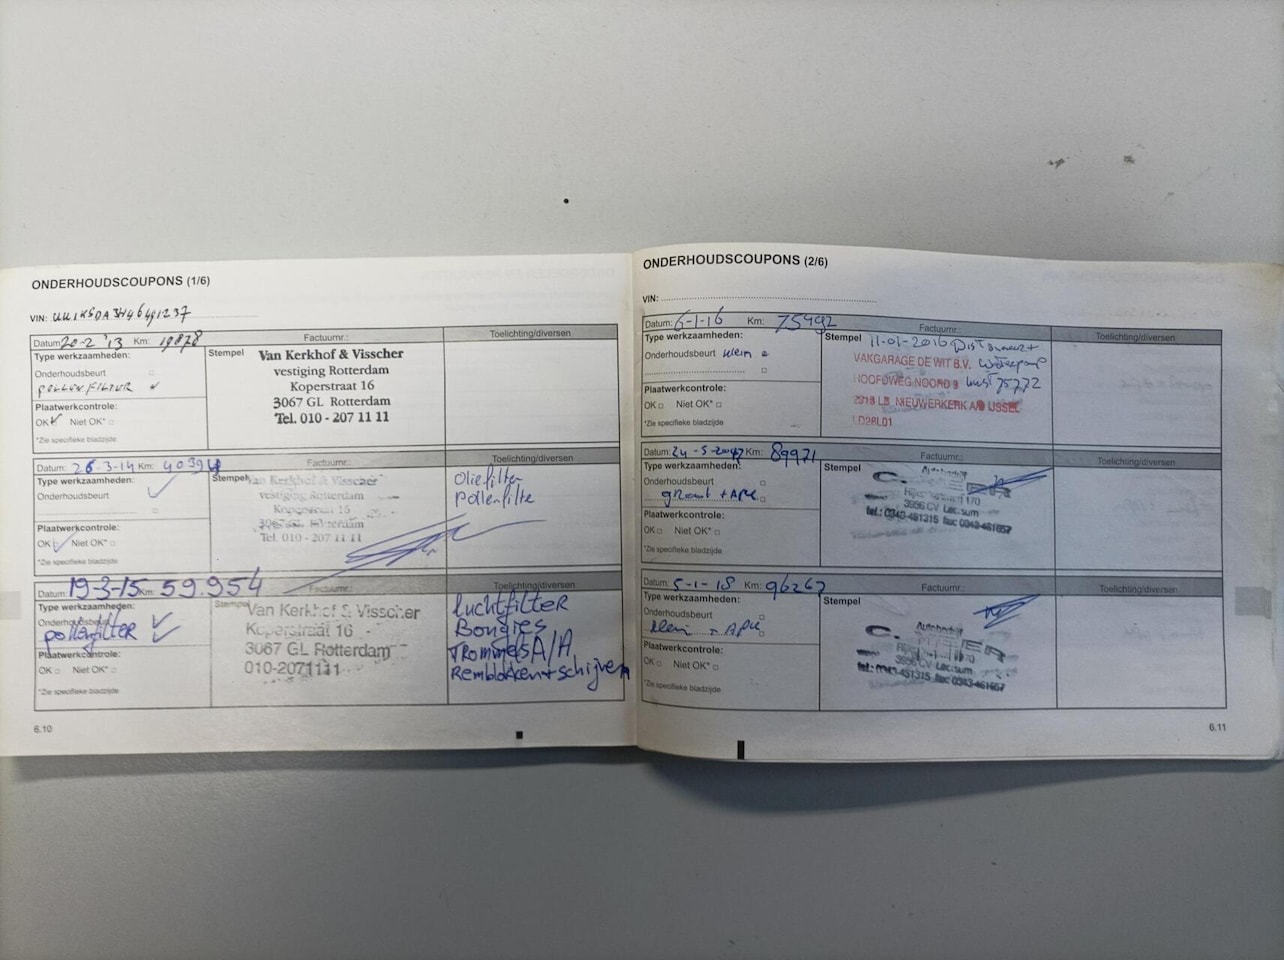 ONDERHOUDSCOUPONS (1/6)
VIN:
Datum: 20-2 '13 Km: 19878 Factuurnr.: Toelichting/diversen
Type werkzaamheden:
Onderhoudsbeurt
POLLENFILTER
Plaatwerkcontrole:
OK Niet OK*
*Zie specifieke bladzijde
Stempel
Van Kerkhof & Visscher
vestiging Rotterdam
Koperstraat 16
3067 GL Rotterdam
Tel. 010 - 207 11 11
Datum: 26-3-14 Km: Factuurnr.: Toelichting/diversen
Type werkzaamheden:
Onderhoudsbeurt
Plaatwerkcontrole:
OK Niet OK*
*Zie specifieke bladzijde
Stempel
Van Kerkhof & Visscher
vestiging Rotterdam
Koperstraat 16
3067 GL Rotterdam
Tel. 010 - 207 11 11
Oliefilter
pollenfilte
Datum: 19-3-15 Km: 59.954 Factuurnr.: Toelichting/diversen
Type werkzaamheden:
Onderhoudsbeurt
pollenfilter
Plaatwerkcontrole:
OK Niet OK*
*Zie specifieke bladzijde
Stempel
Van Kerkhof & Visscher
Koperstraat 16
3067 GL Rotterdam
010-2071111
luchtfilter
Bougies
Trommels A/A
Remblokken + schijven
6.10
ONDERHOUDSCOUPONS (2/6)
VIN:
Datum: 6-1-16 Km: 75492 Factuurnr.: Toelichting/diversen
Type werkzaamheden:
Onderhoudsbeurt klein
Plaatwerkcontrole:
OK Niet OK*
*Zie specifieke bladzijde
Stempel 11-01-2016
VAKGARAGE DE WIT B.V. waterpomp
HOOFDWEG NOORD 9 75772
2913 LB NIEUWERKERK A/D IJSSEL
Datum: Km: 89971 Factuurnr.: Toelichting/diversen
Type werkzaamheden:
Onderhoudsbeurt
groot + APK
Plaatwerkcontrole:
OK Niet OK*
*Zie specifieke bladzijde
Stempel
Autobedrijf
3956 CV Leersum
tel.: 0343-451315 fax 0343-461657
Datum: 5-1-18 Km: 96267 Factuurnr.: Toelichting/diversen
Type werkzaamheden:
Onderhoudsbeurt
klein + APK
Plaatwerkcontrole:
OK Niet OK*
*Zie specifieke bladzijde
Stempel
Autobedrijf
3956 CV Leersum
tel.: 0343-451315 fax 0343-461657
6.11